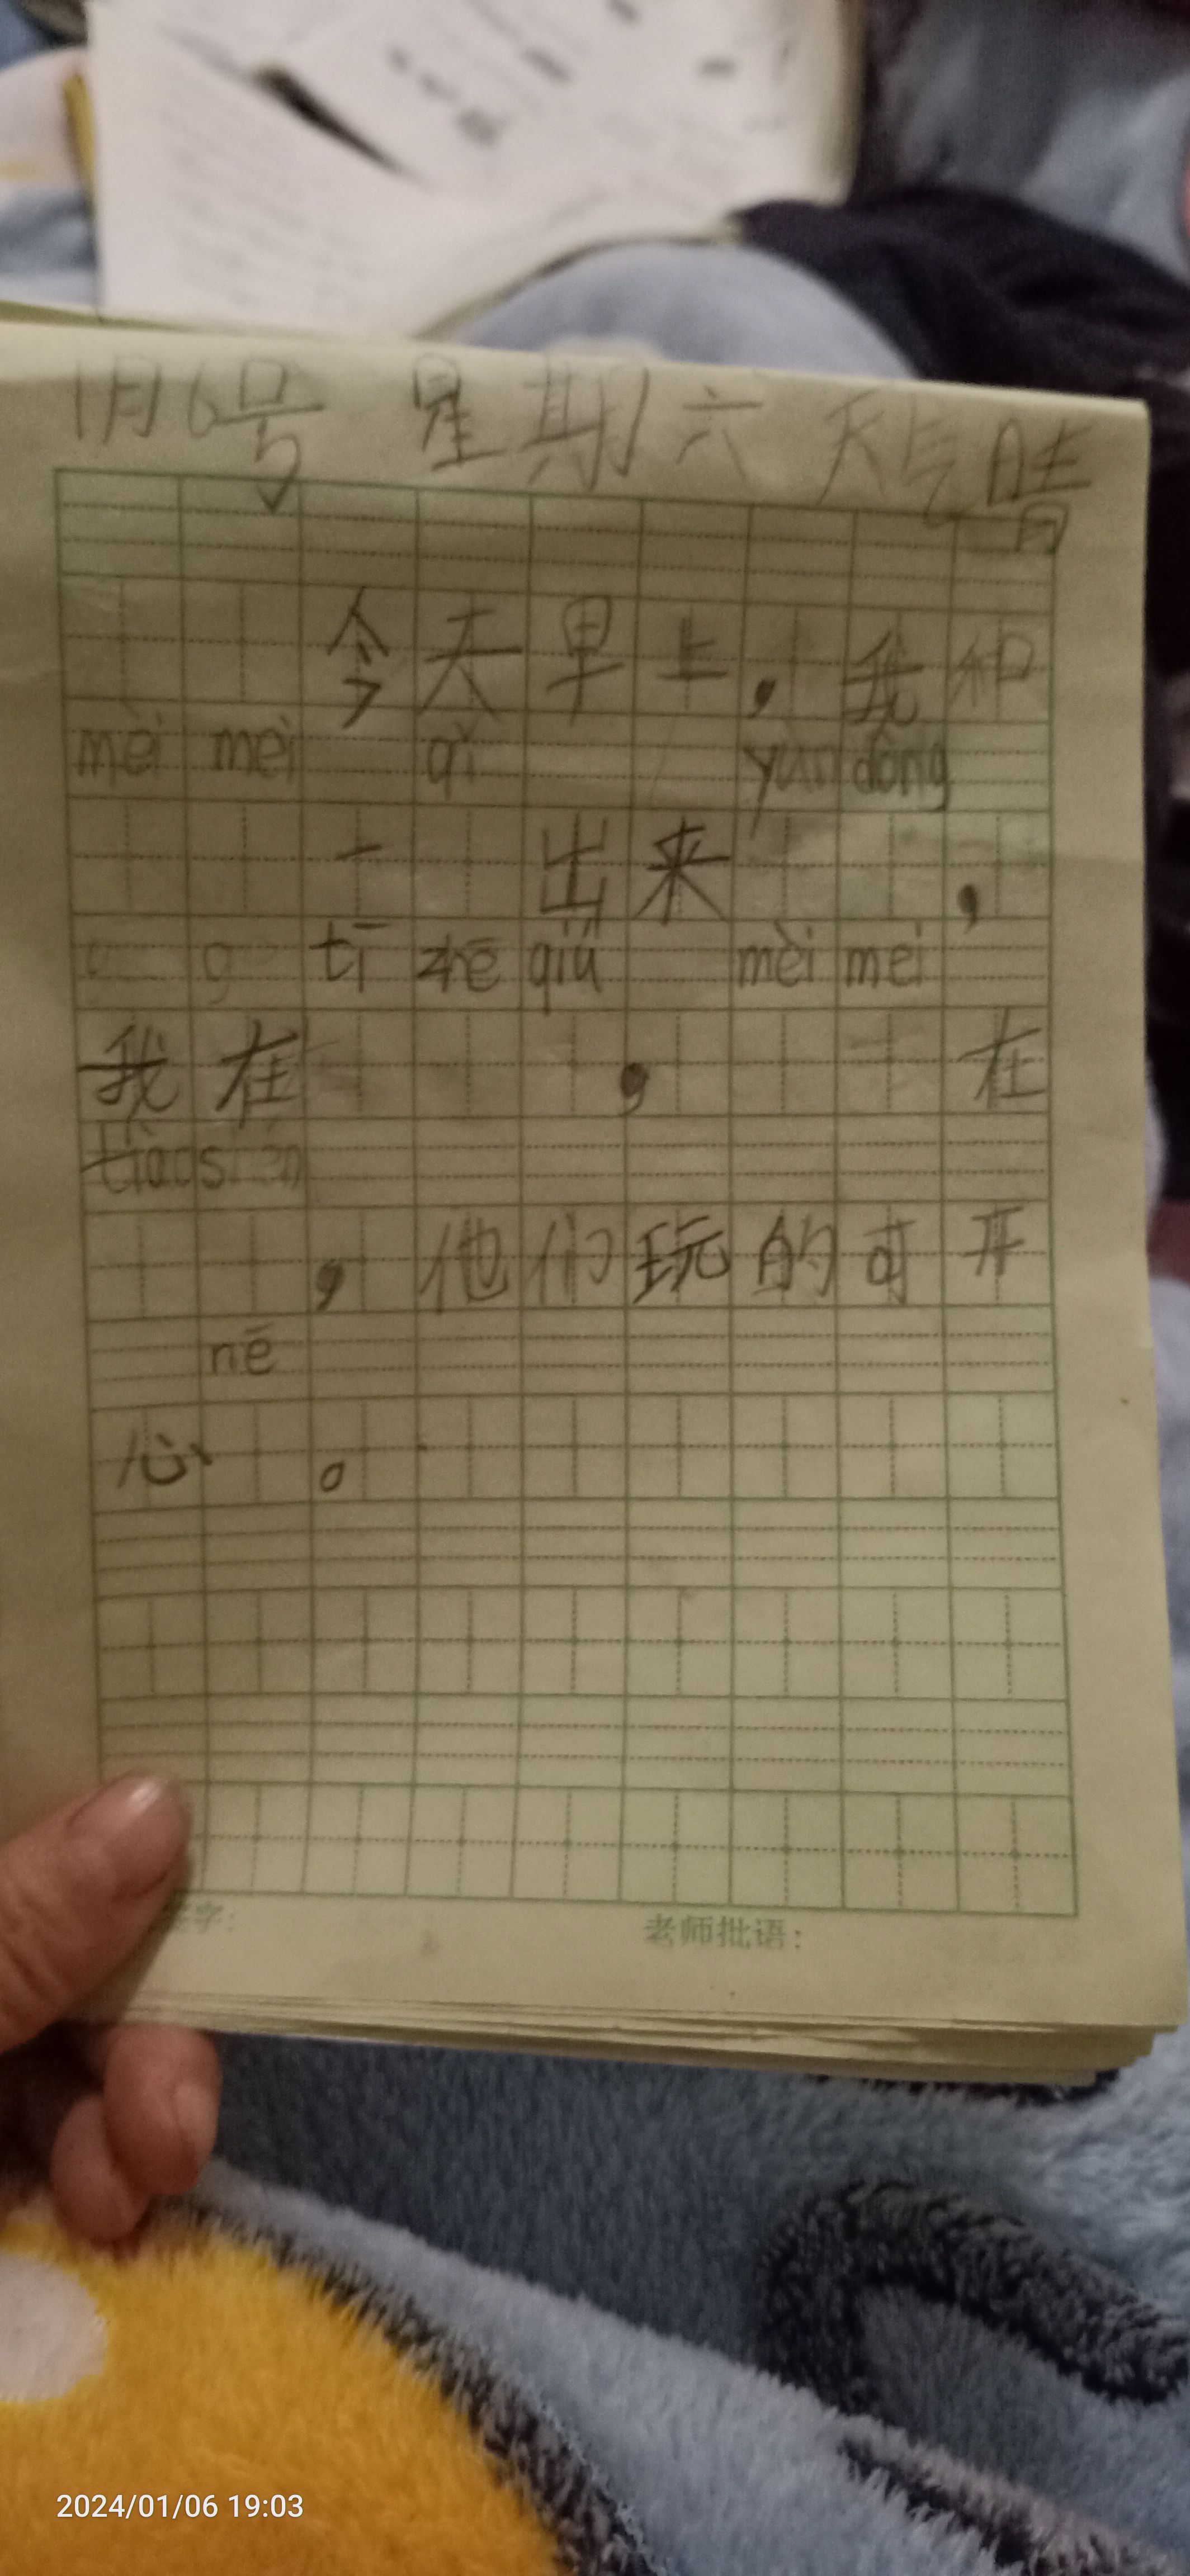 1月6号 星期六 天气晴
今天早上，我和
mèi mei qǐ yùn dòng
一 出来 ，
tī zhē qiú mèi mei
我在 ， 在
tiào
， 他们玩的可开
nē
心 。
老师批语：
2024/01/06 19:03